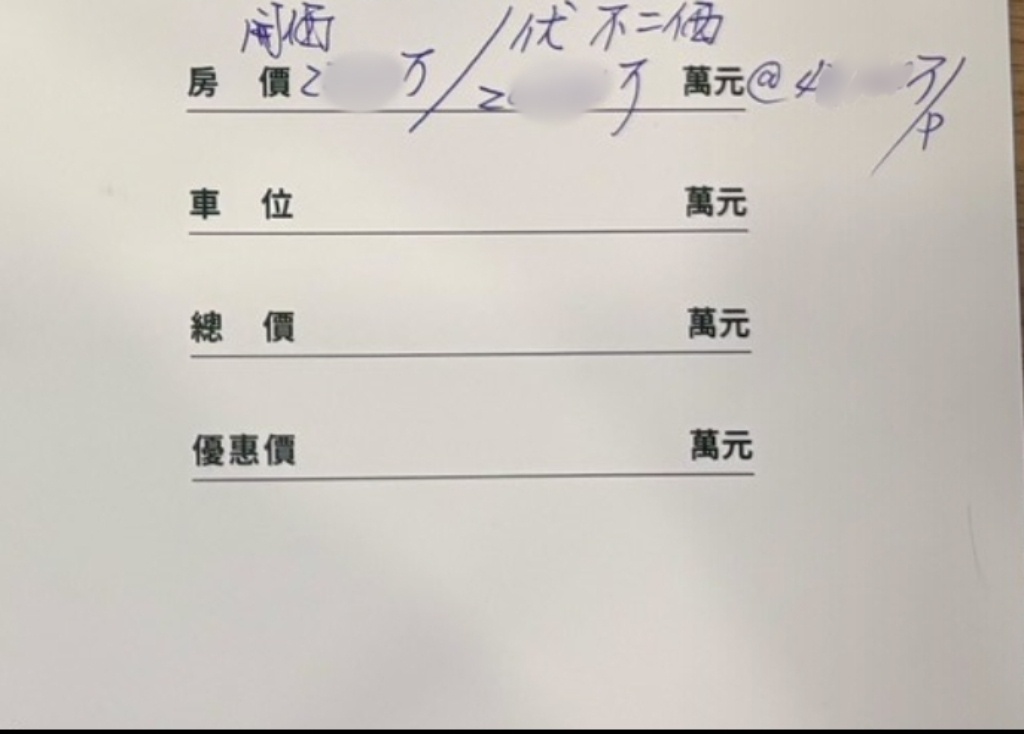 開価 / 伏 不二価
房 價 2 万 / 2 万 萬元 @ 4 万/P
車 位 萬元
總 價 萬元
優惠價 萬元